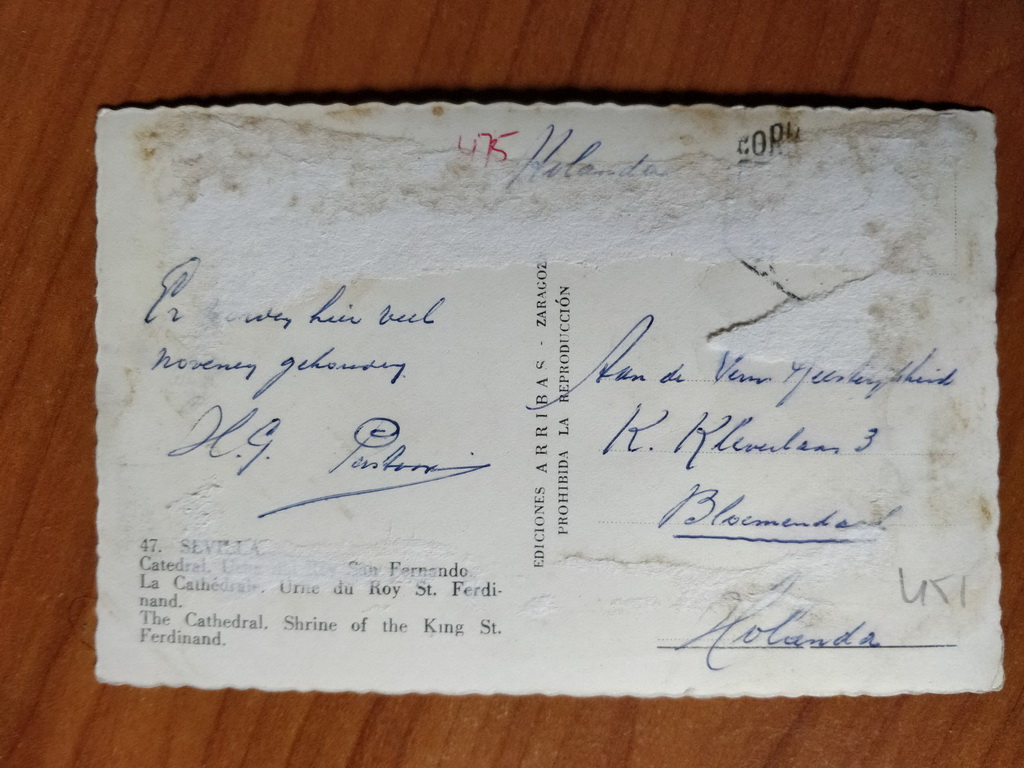 475 Holanda
Er worden hier veel
novenen gehouden
H.G. Pastoor
47. SEVILLA
Catedral. Urna del Rey San Fernando.
La Cathédrale. Urne du Roy St. Ferdi-
nand.
The Cathedral. Shrine of the King St.
Ferdinand.
EDICIONES ARRIBAS - ZARAGOZ
PROHIBIDA LA REPRODUCCIÓN
Aan de
K. Kleverlaan 3
Bloemendaal
451
Holanda